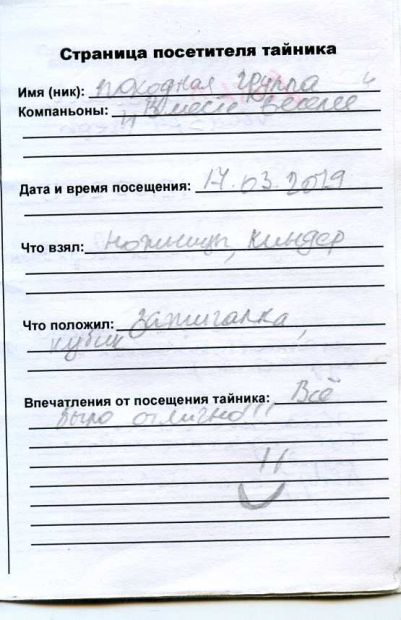 Страница посетителя тайника
Имя (ник): походная группа
Компаньоны: "Вместе веселее"
Дата и время посещения: 17.03.2019
Что взял: ножницы, киндер
Что положил: Зажигалка,
кубик
Впечатления от посещения тайника: Всё
было отлично!!!